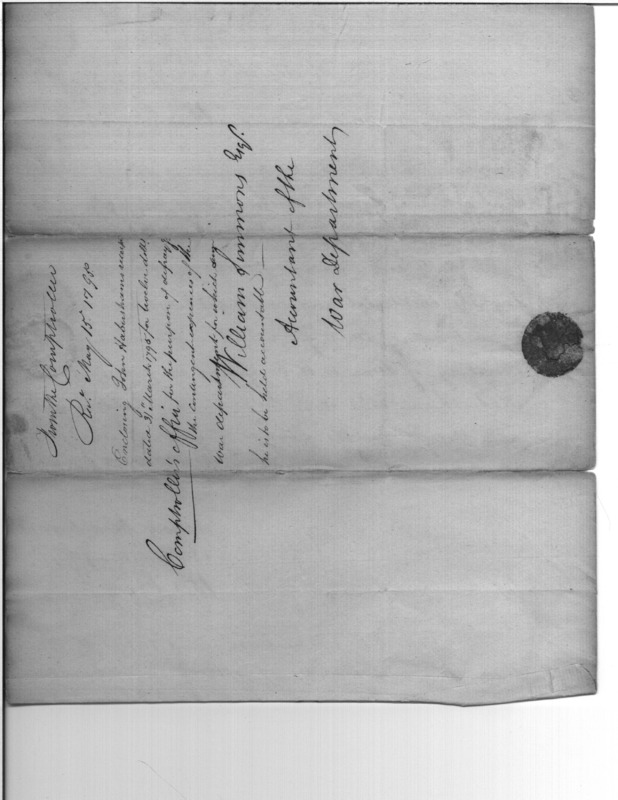 From the Comptroller
Rec.d May 15th 1798
Enclosing John Habershams receipt
dated 31st March 1795 for twelve dolls
for the purpose of defraying
the Contingent expenses of the
War department for which sum
he is to be held accountable
Comptroller's office
William Simmons Esqr.
Accountant of the
War Department